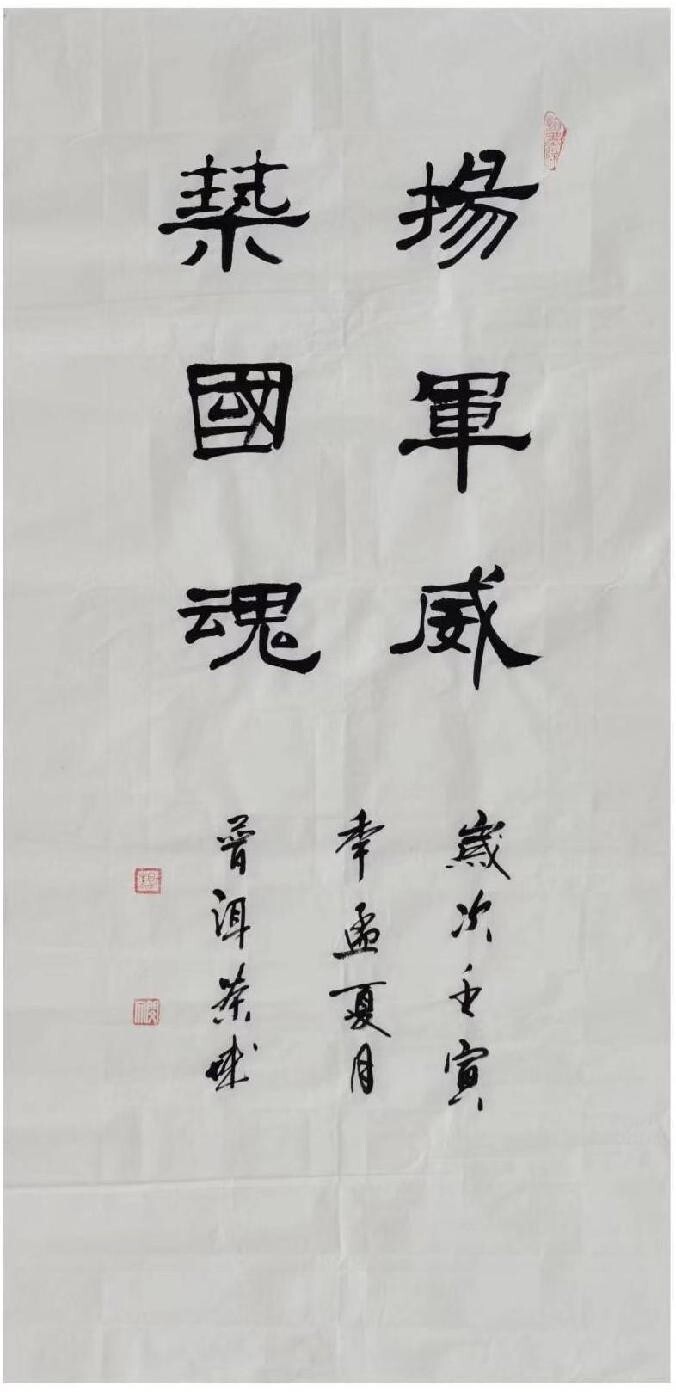 揚軍威
築國魂
歲次壬寅
年孟夏月
普洱茶城